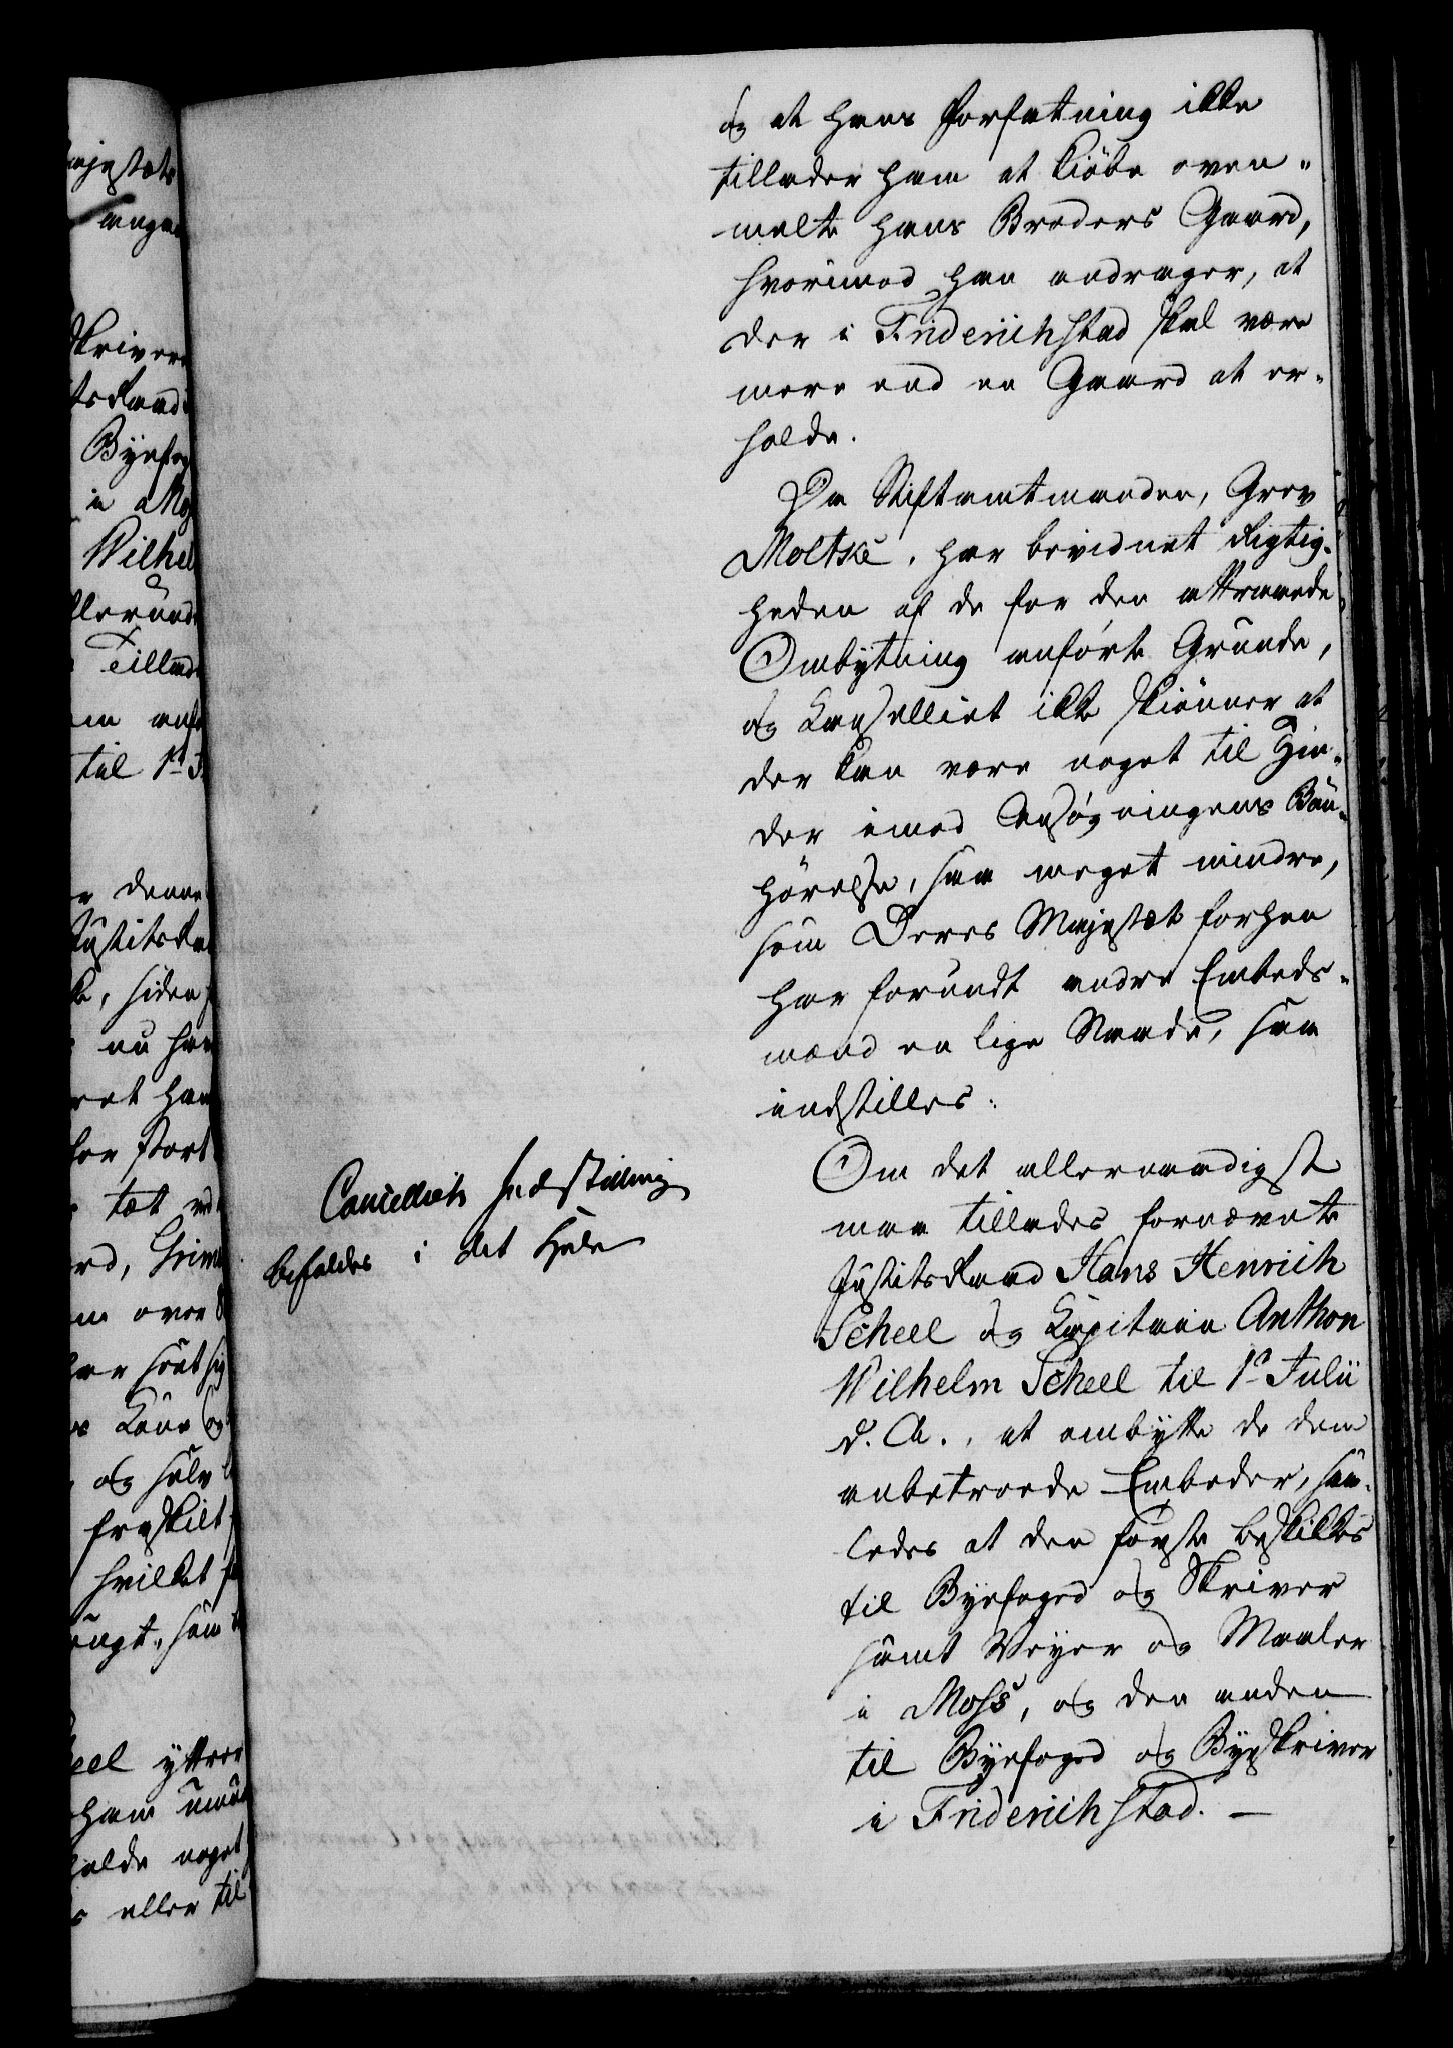 og at hans Forfatning ikke
tillader ham at kiöbe oven„
melte hans Broders Gaard,
hvorimod han andrager, at
der i Friderichstad skal være
mere end en Gaard at er„
holde.
Da Stiftamtmanden, Grev
Moltke, har bevidnet Rigtig„
heden af de for den attraaede
Ombytning anförte Grunde,
og Kanselliet ikke skiönner at
der kan være noget til Hin„
der imod Ansögningens Bön„
hörelse, saa meget mindre,
som Deres Majestæt forhen
har forundt andre Embeds„
mænd en lige Naade, saa
indstilles:
Om det allernaadigst
maa tillades fornævnte
Justitsraad Hans Henrich
Scheel og Kapitain Anthon
Wilhelm Scheel til 1ma Julii
d. A., at ombytte de dem
anbetroede Embeder, saa„
ledes at den förste beskikkes
til Byefoged og Skriver
samt Veyer og Maaler
i Moss, og den anden
til Byefoged og Byeskriver
i Friderichstad. —
Cancelliets Indstilling
befaldes i det Hele